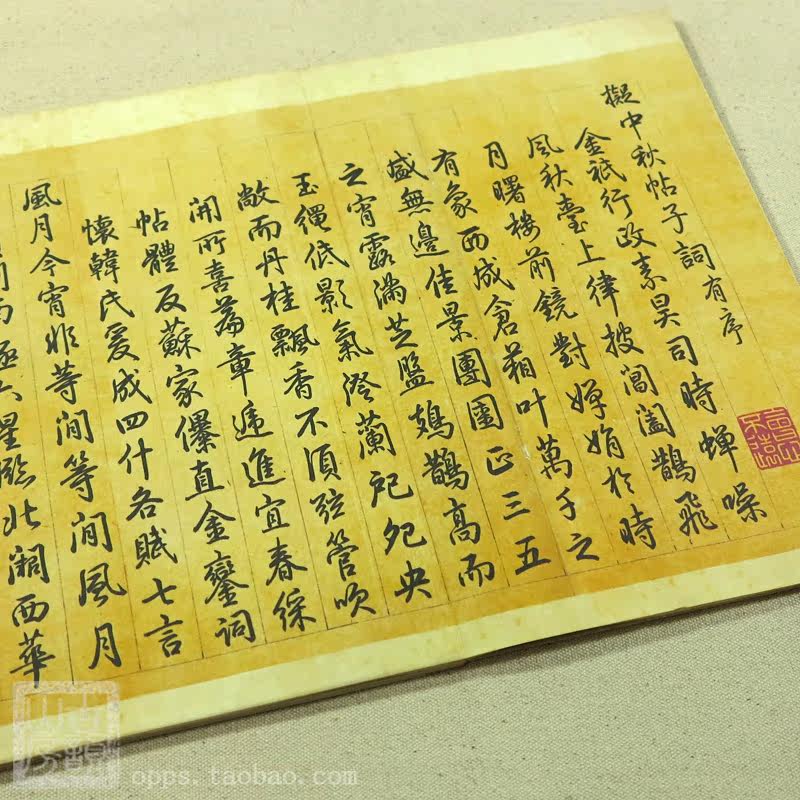 擬中秋帖子詞有序
金祇行政素昊司時蟬噪
風秋臺上律披閶闔鵲飛
月曙樓前鏡對嬋娟於時
有象西成倉箱叶萬千之
盛無邊佳景團圞正三五
之宵露滿芝盤鳷鵲高而
玉繩低影氣澄蘭戺夗央
敞而丹桂飄香不須弦管吹
開所喜篇章遞進宜春綵
帖體反蘇家儤直金鑾詞
懷韓氏爰成四什各賦七言
風月今宵非等閒等閒風月
南極六星臨北闕西華
opps.taobao.com